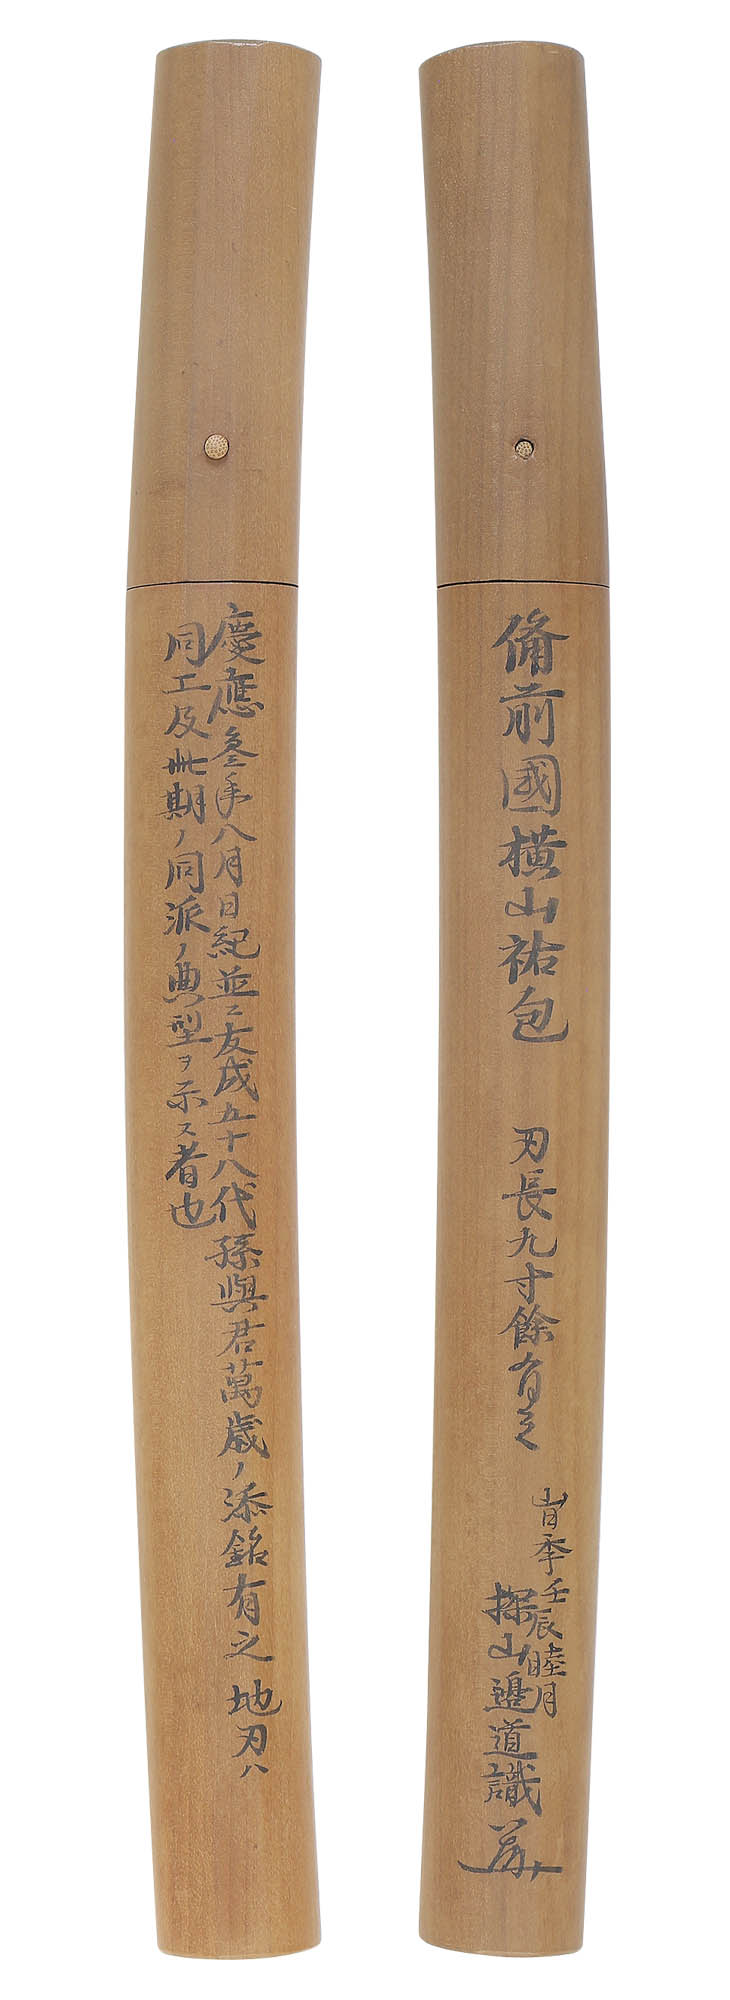 備前國横山祐包
刃長九寸餘有之
時季壬辰睦月
探山邉道識
慶應叄年八月日紀並ニ友成五十八代孫與君萬歳ノ添銘有之 地刃ハ
同工及此期ノ同派ノ典型ヲ示ス者也